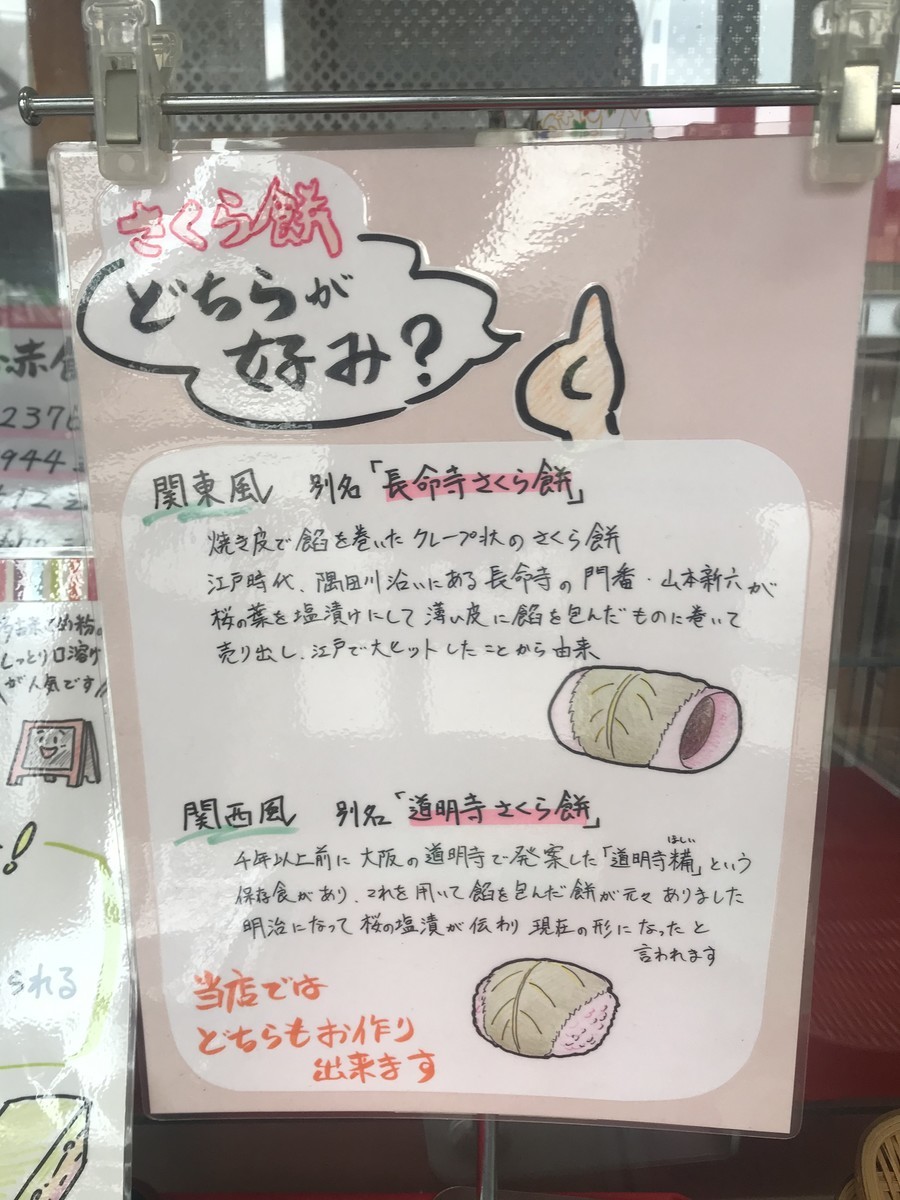 さくら餅
どちらが
好み?
関東風 別名「長命寺さくら餅」
焼き皮で餡を巻いたクレープ状のさくら餅
江戸時代、隅田川沿いにある長命寺の門番・山本新六が
桜の葉を塩漬けにして薄い皮に餡を包んだものに巻いて
売り出し、江戸で大ヒットしたことから由来
関西風 別名「道明寺さくら餅」
ほしい
千年以上前に大阪の道明寺で発案した「道明寺糒」という
保存食があり、これを用いて餡を包んだ餅が元々ありました
明治になって桜の塩漬が伝わり現在の形になったと
言われます
当店では
どちらもお作り
出来ます
赤
237
944
め粉
しっとり口溶け
が人気です
られる